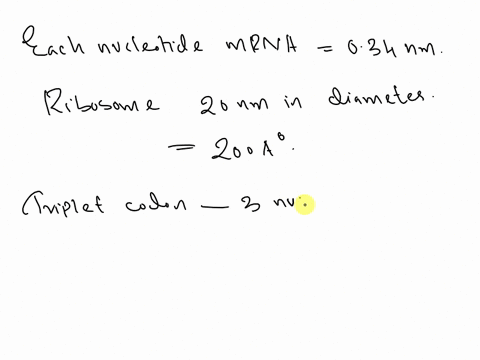 Each nucleotide mRNA = 0.34 nm.
Ribosome 20 nm in diameter.
= 200 A°.
Triplet codon — 3 nu